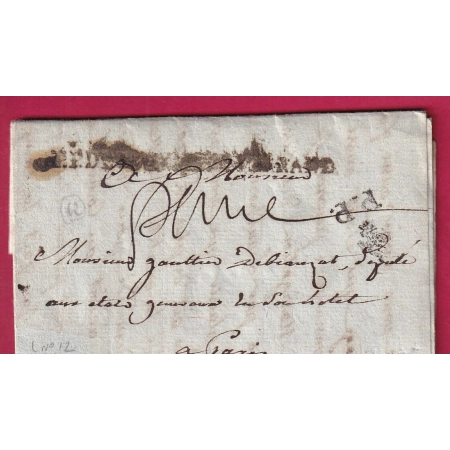 A Monsieur
P.P.
Monsieur gaultier Debiauzat, député
aux etats generaux en son hotel
a Paris
12
L n° 12